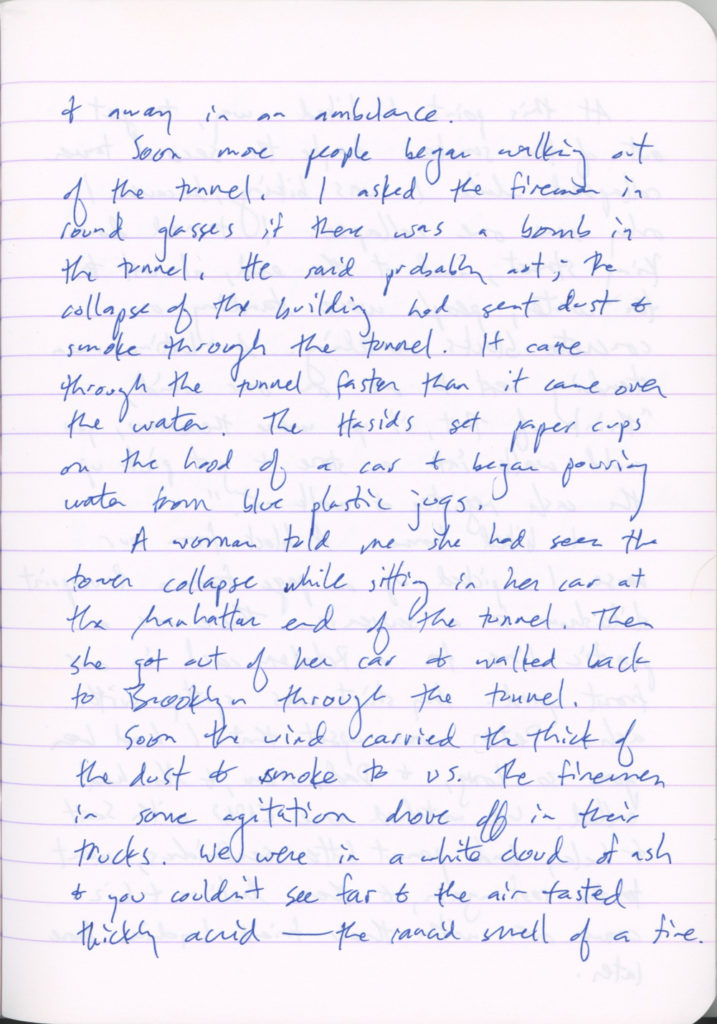 & away in an ambulance.
Soon more people began walking out
of the tunnel. I asked the fireman in
round glasses if there was a bomb in
the tunnel. He said probably not; the
collapse of the building had sent dust &
smoke through the tunnel. It came
through the tunnel faster than it came over
the water. The Hasids set paper cups
on the hood of a car & began pouring
water from blue plastic jugs.
A woman told me she had seen the
tower collapse while sitting in her car at
the Manhattan end of the tunnel. Then
she got out of her car & walked back
to Brooklyn through the tunnel.
Soon the wind carried the thick of
the dust & smoke to us. The firemen
in some agitation drove off in their
trucks. We were in a white cloud of ash
& you couldn't see far & the air tasted
thickly acrid — the rancid smell of a fire.